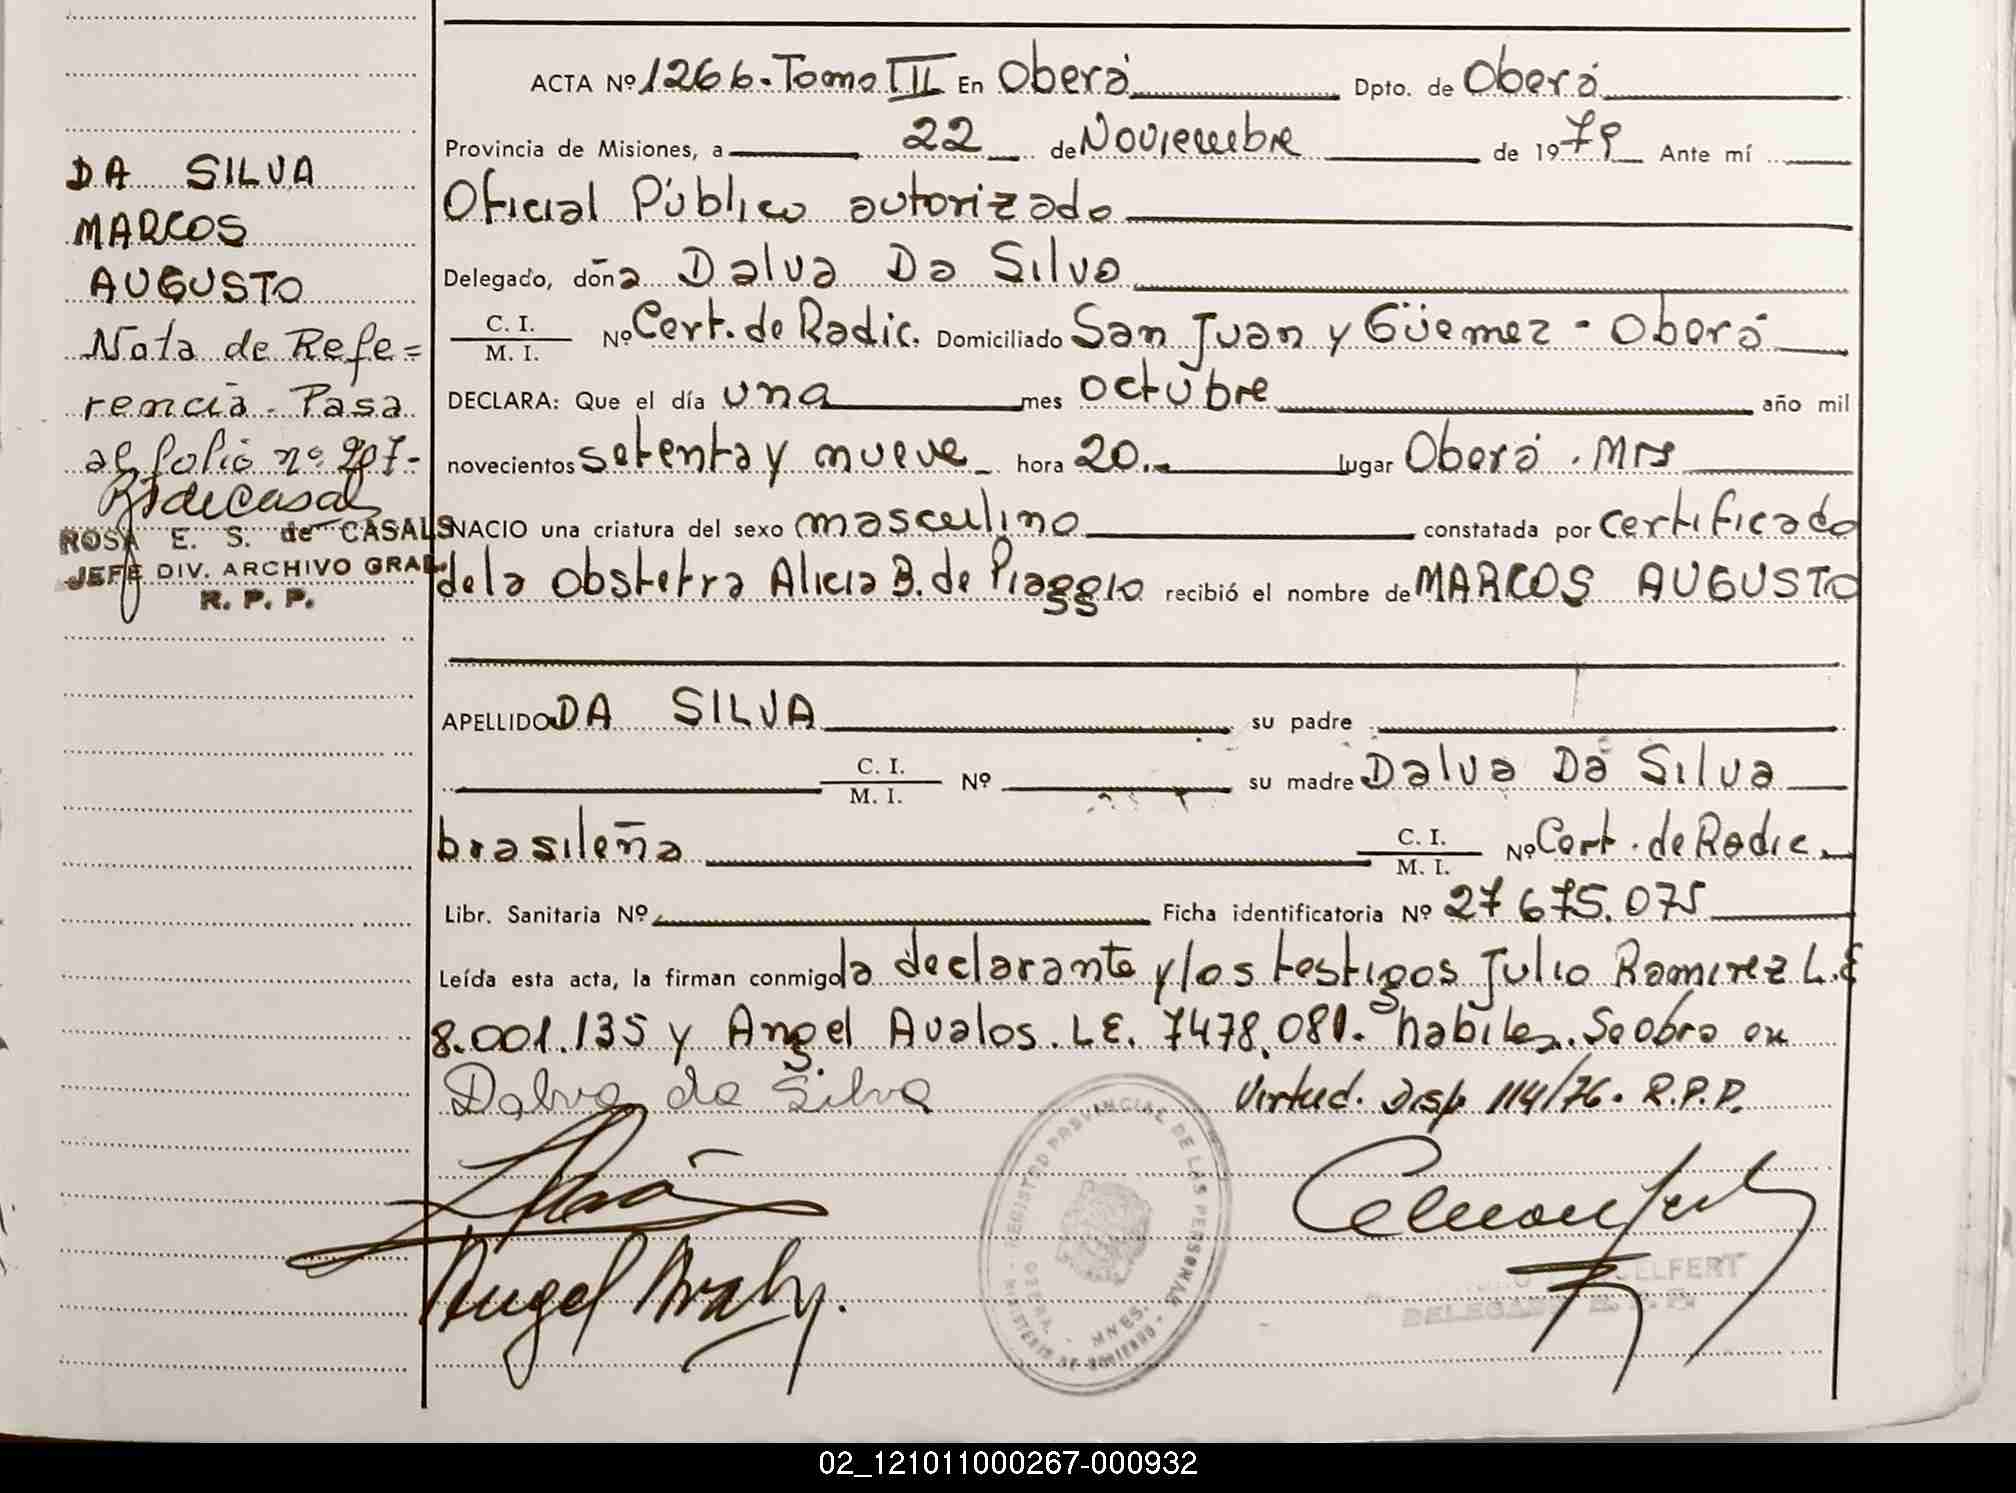 ACTA Nº 1266. Tomo III En Oberá Dpto. de Oberá
Provincia de Misiones, a 22 de Noviembre de 1979 Ante mí
Oficial Público autorizado
Delegado, doña Dalva Da Silva
C. I.
M. I. Nº Cert. de Radic. Domiciliado San Juan y Güemez - Oberá
DECLARA: Que el día una mes octubre año mil
novecientos setenta y nueve hora 20. lugar Oberá . Mns
NACIO una criatura del sexo masculino constatada por certificado
de la obstetra Alicia B. de Piaggio recibió el nombre de MARCOS AUGUSTO
APELLIDO DA SILVA su padre
C. I.
M. I. Nº su madre Dalva Da Silva
brasileña C. I.
M. I. Nº Cert. de Radic.
Libr. Sanitaria Nº Ficha identificatoria Nº 27 675.075
Leída esta acta, la firman conmigo la declarante y los testigos Julio Ramirez L.E
8.001.135 y Angel Avalos. L.E. 7478.081. habiles. Se obra en
virtud. Disp 114/76. R.P.P.
Dalva da Silva
Angel
DA SILVA
MARCOS
AUGUSTO
Nota de Refe=
rencia. Pasa
al folio nº 207-
ROSA E. S. de CASALS
JEFE DIV. ARCHIVO GRAL.
R. P. P.
REGISTRO PROVINCIAL DE LAS PERSONAS
MINISTERIO DE GOBIERNO
OBERA. - MNES.
DELEGADO R. P. P.
02_121011000267-000932